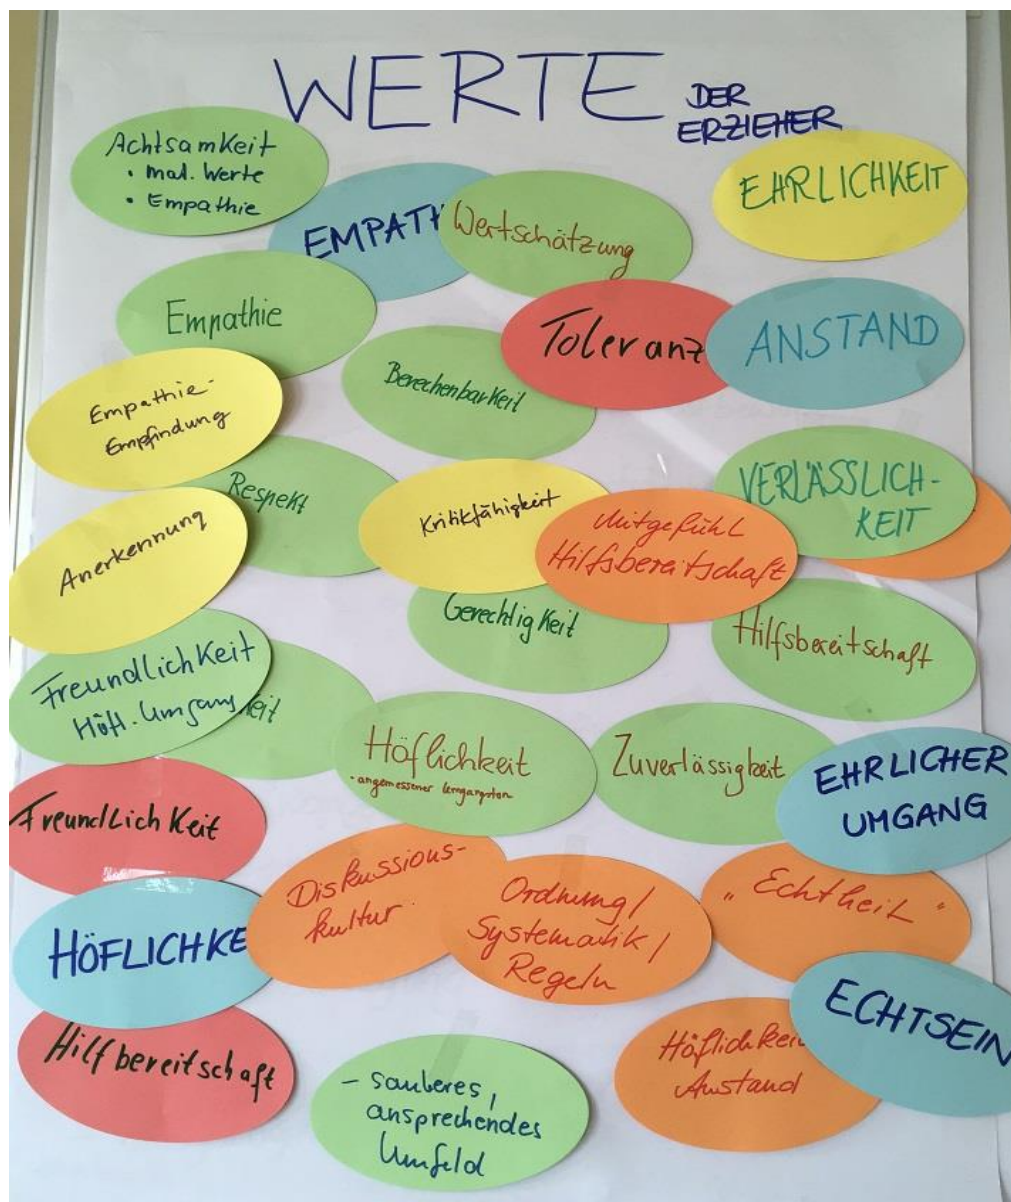 WERTE DER
ERZIEHER
Achtsamkeit
• mat. Werte
• Empathie
EMPATH
Wertschätzung
EHRLICHKEIT
Empathie
Toleranz
ANSTAND
Berechenbarkeit
Empathie-
Empfindung
Respekt
Kritikfähigkeit
Mitgefühl
Hilfsbereitschaft
VERLÄSSLICH-
KEIT
Anerkennung
Gerechtigkeit
Hilfsbereitschaft
Freundlichkeit
Höfl. Umgang
keit
Höflichkeit
• angemessener Umgangston
Zuverlässigkeit
EHRLICHER
UMGANG
Freundlichkeit
Diskussions-
kultur
Ordnung/
Systematik/
Regeln
„Echtheit"
HÖFLICHKE
ECHTSEIN
Hilfbereitschaft
Höflichkei
Anstand
- sauberes,
ansprechendes
Umfeld